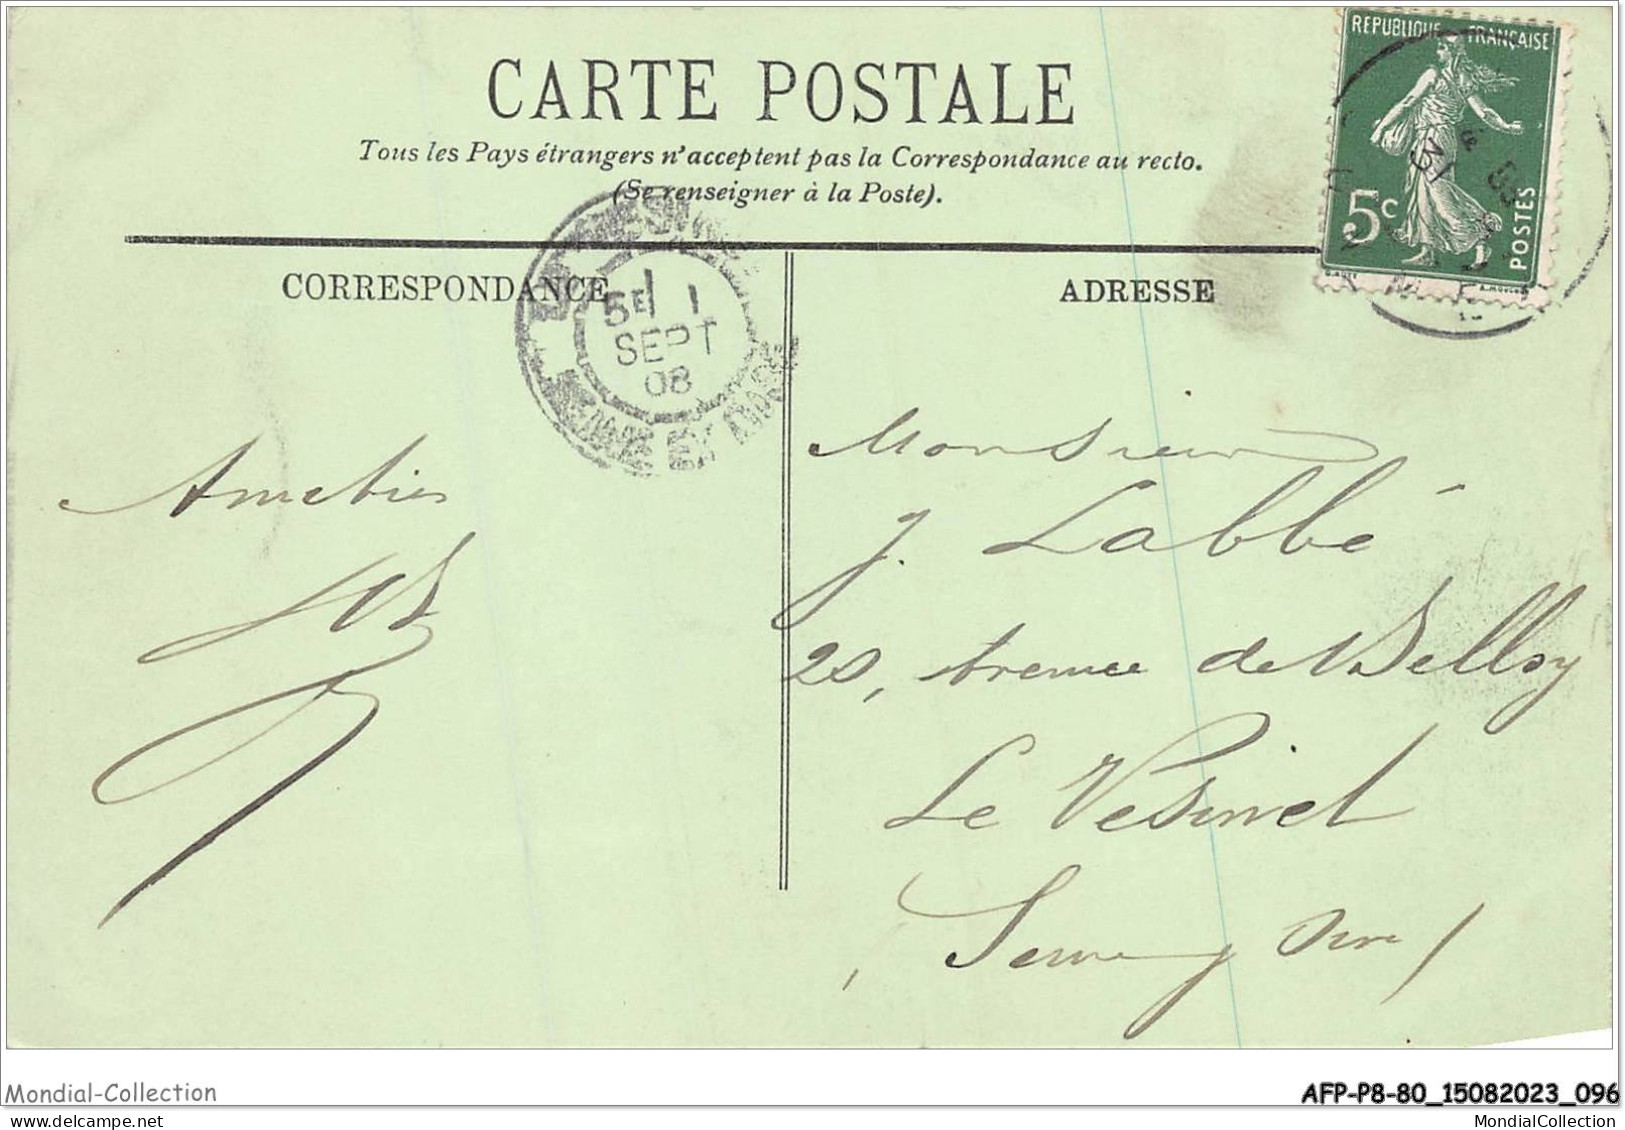 RÉPUBLIQUE FRANÇAISE
5c
POSTES
CARTE POSTALE
Tous les Pays étrangers n'acceptent pas la Correspondance au recto.
(Se renseigner à la Poste).
CORRESPONDANCE
ADRESSE
5E 1
SEPT
08
Monsieur
J. Labbé
20, Avenue de Belloy
Le Vésinet
Seine
Amitiés
Mondial-Collection
AFP-P8-80_15082023_096
MondialCollection